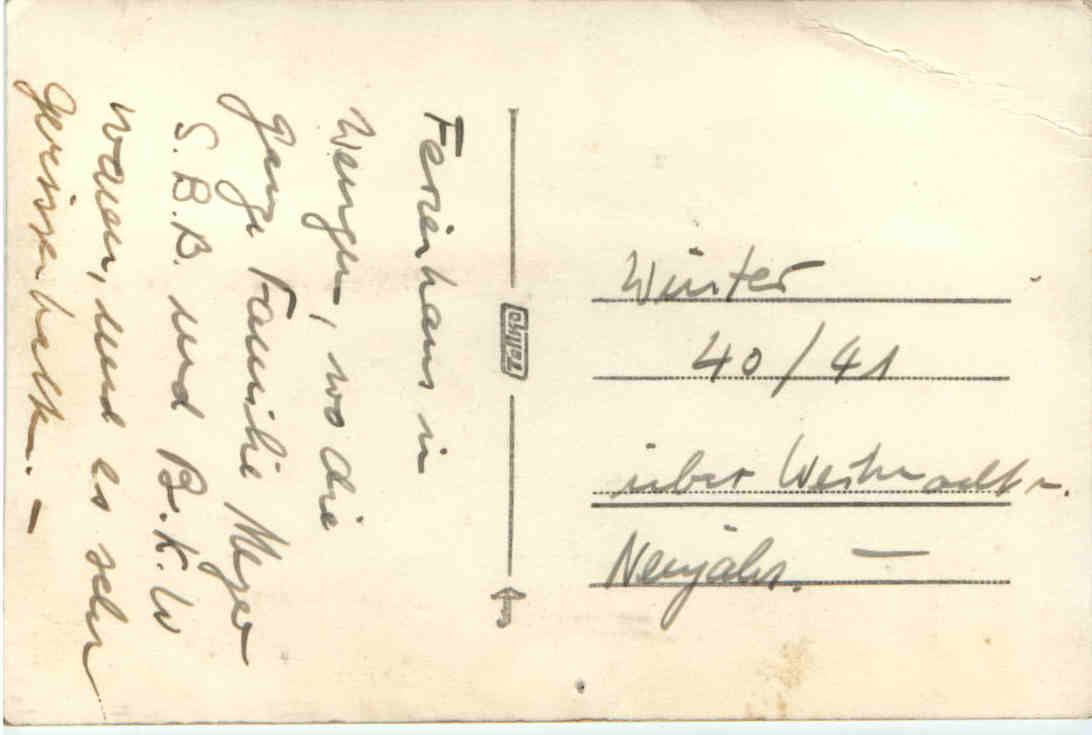 Ferienhaus in
Wengen, wo die
ganze Familie Meyer
S.B.B. und B.K.W
waren, und es sehr
genossen hatten. –
Winter
40/41
über Weihnacht u.
Neujahr. –